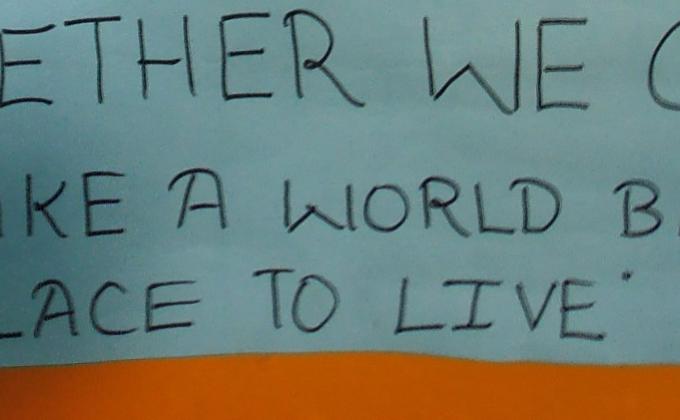 ETHER WE C
KE A WORLD B
LACE TO LIVE